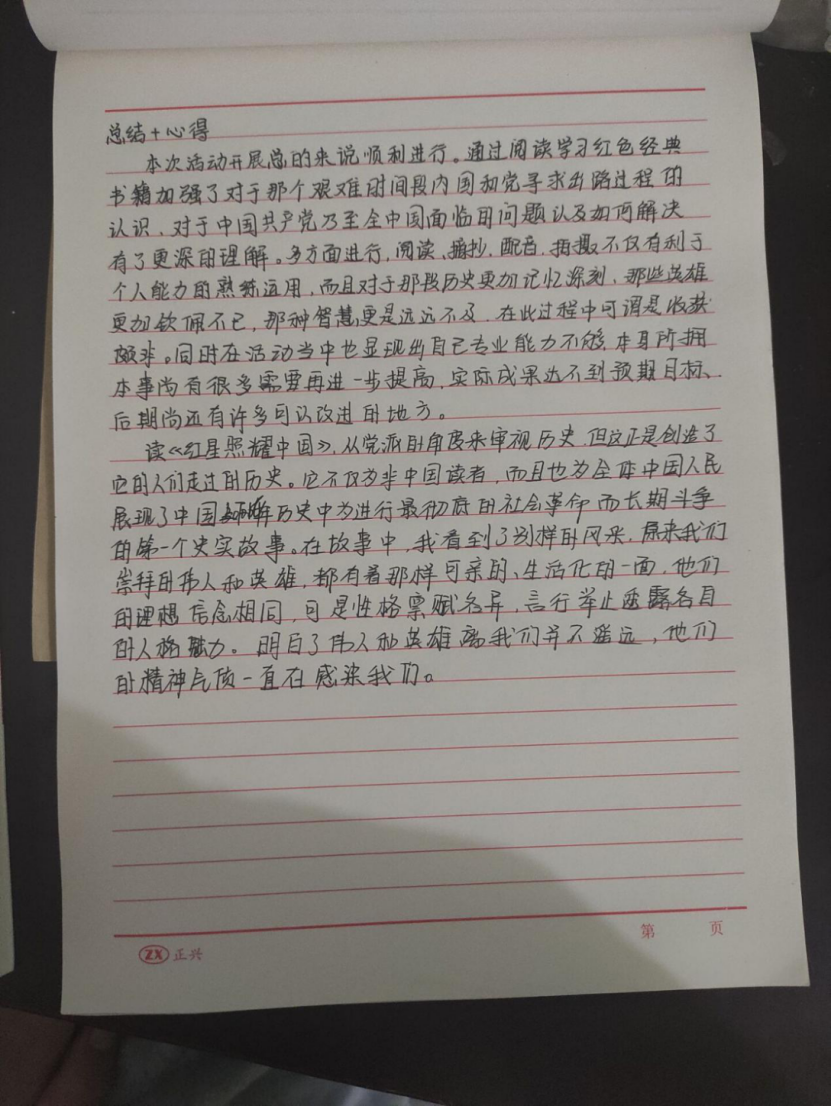 总结+心得
本次活动开展总的来说顺利进行。通过阅读学习红色经典
书籍加强了对于那个艰难时间段内国和党寻求出路过程的
认识,对于中国共产党乃至全中国面临的问题以及如何解决
有了更深的理解。多方面进行,阅读、摘抄、配音、拍摄不仅有利于
个人能力的熟练运用,而且对于那段历史更加记忆深刻,那些英雄
更加钦佩不已,那种智慧更是远远不及,在此过程中可谓是收获
颇丰。同时在活动当中也显现出自己专业能力不够,本身所拥
本事尚有很多需要再进一步提高,实际成果达不到预期目标、
后期尚还有许多可以改进的地方。
读《红星照耀中国》,从党派的角度来审视历史,但这正是创造了
它的人们走过的历史。它不仅为非中国读者,而且也为全体中国人民
展现了中国历史中为进行最彻底的社会革命而长期斗争
的第一个史实故事。在故事中,我看到了别样的风采,原来我们
崇拜的伟人和英雄,都有着那样可亲的、生活化的一面,他们
的理想信念相同,可是性格禀赋各异,言行举止透露各自
的人格魅力。明白了伟人和英雄离我们并不遥远,他们
的精神气质一直在感染我们。
第 页
ZX 正兴